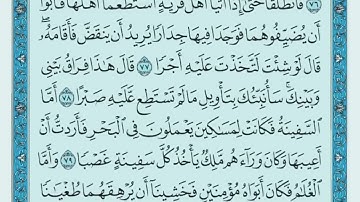 ٧٦ فَانطَلَقَا حَتَّىٰ إِذَا أَتَيَا أَهْلَ قَرْيَةٍ اسْتَطْعَمَا أَهْلَهَا فَأَبَوْا
أَن يُضَيِّفُوهُمَا فَوَجَدَا فِيهَا جِدَارًا يُرِيدُ أَن يَنقَضَّ فَأَقَامَهُ ۖ
قَالَ لَوْ شِئْتَ لَتَّخَذْتَ عَلَيْهِ أَجْرًا ٧٧ قَالَ هَٰذَا فِرَاقُ بَيْنِي
وَبَيْنِكَ ۚ سَأُنَبِّئُكَ بِتَأْوِيلِ مَا لَمْ تَسْتَطِع عَّلَيْهِ صَبْرًا ٧٨ أَمَّا
السَّفِينَةُ فَكَانَتْ لِمَسَاكِينَ يَعْمَلُونَ فِي الْبَحْرِ فَأَرَدتُّ أَنْ
أَعِيبَهَا وَكَانَ وَرَاءَهُم مَّلِكٌ يَأْخُذُ كُلَّ سَفِينَةٍ غَصْبًا ٧٩ وَأَمَّا
الْغُلَامُ فَكَانَ أَبَوَاهُ مُؤْمِنَيْنِ فَخَشِينَا أَن يُرْهِقَهُمَا طُغْيَانًا